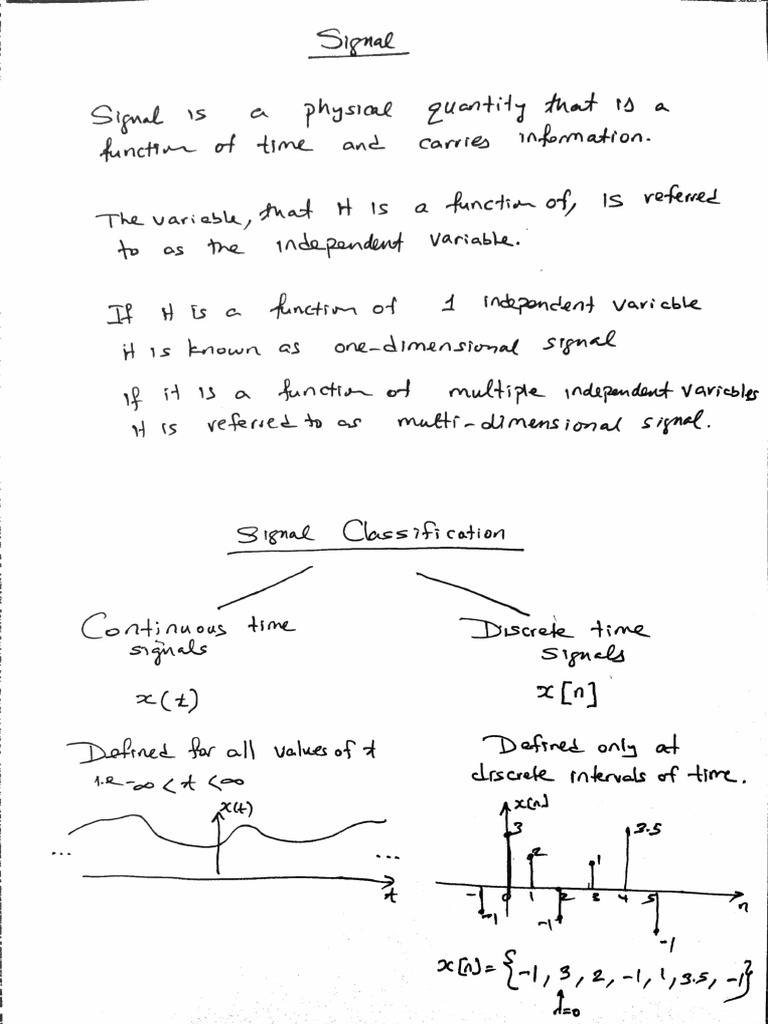 Signal
Signal is a physical quantity that is a
function of time and carries information.
The variable, that it is a function of, is referred
to as the independent variable.
If it is a function of 1 independent variable
it is known as one-dimensional signal
If it is a function of multiple independent variables
it is referred to as multi-dimensional signal.
Signal Classification
Continuous time
signals
x(t)
Defined for all values of t
i.e -∞ < t < ∞
x(t)
... ...
t
Discrete time
signals
x[n]
Defined only at
discrete intervals of time.
x[n]
3 2 1 3.5
-1 0 1 2 3 4 5 n
-1 -1 -1
x[n] = {-1, 3, 2, -1, 1, 3.5, -1}
n=0